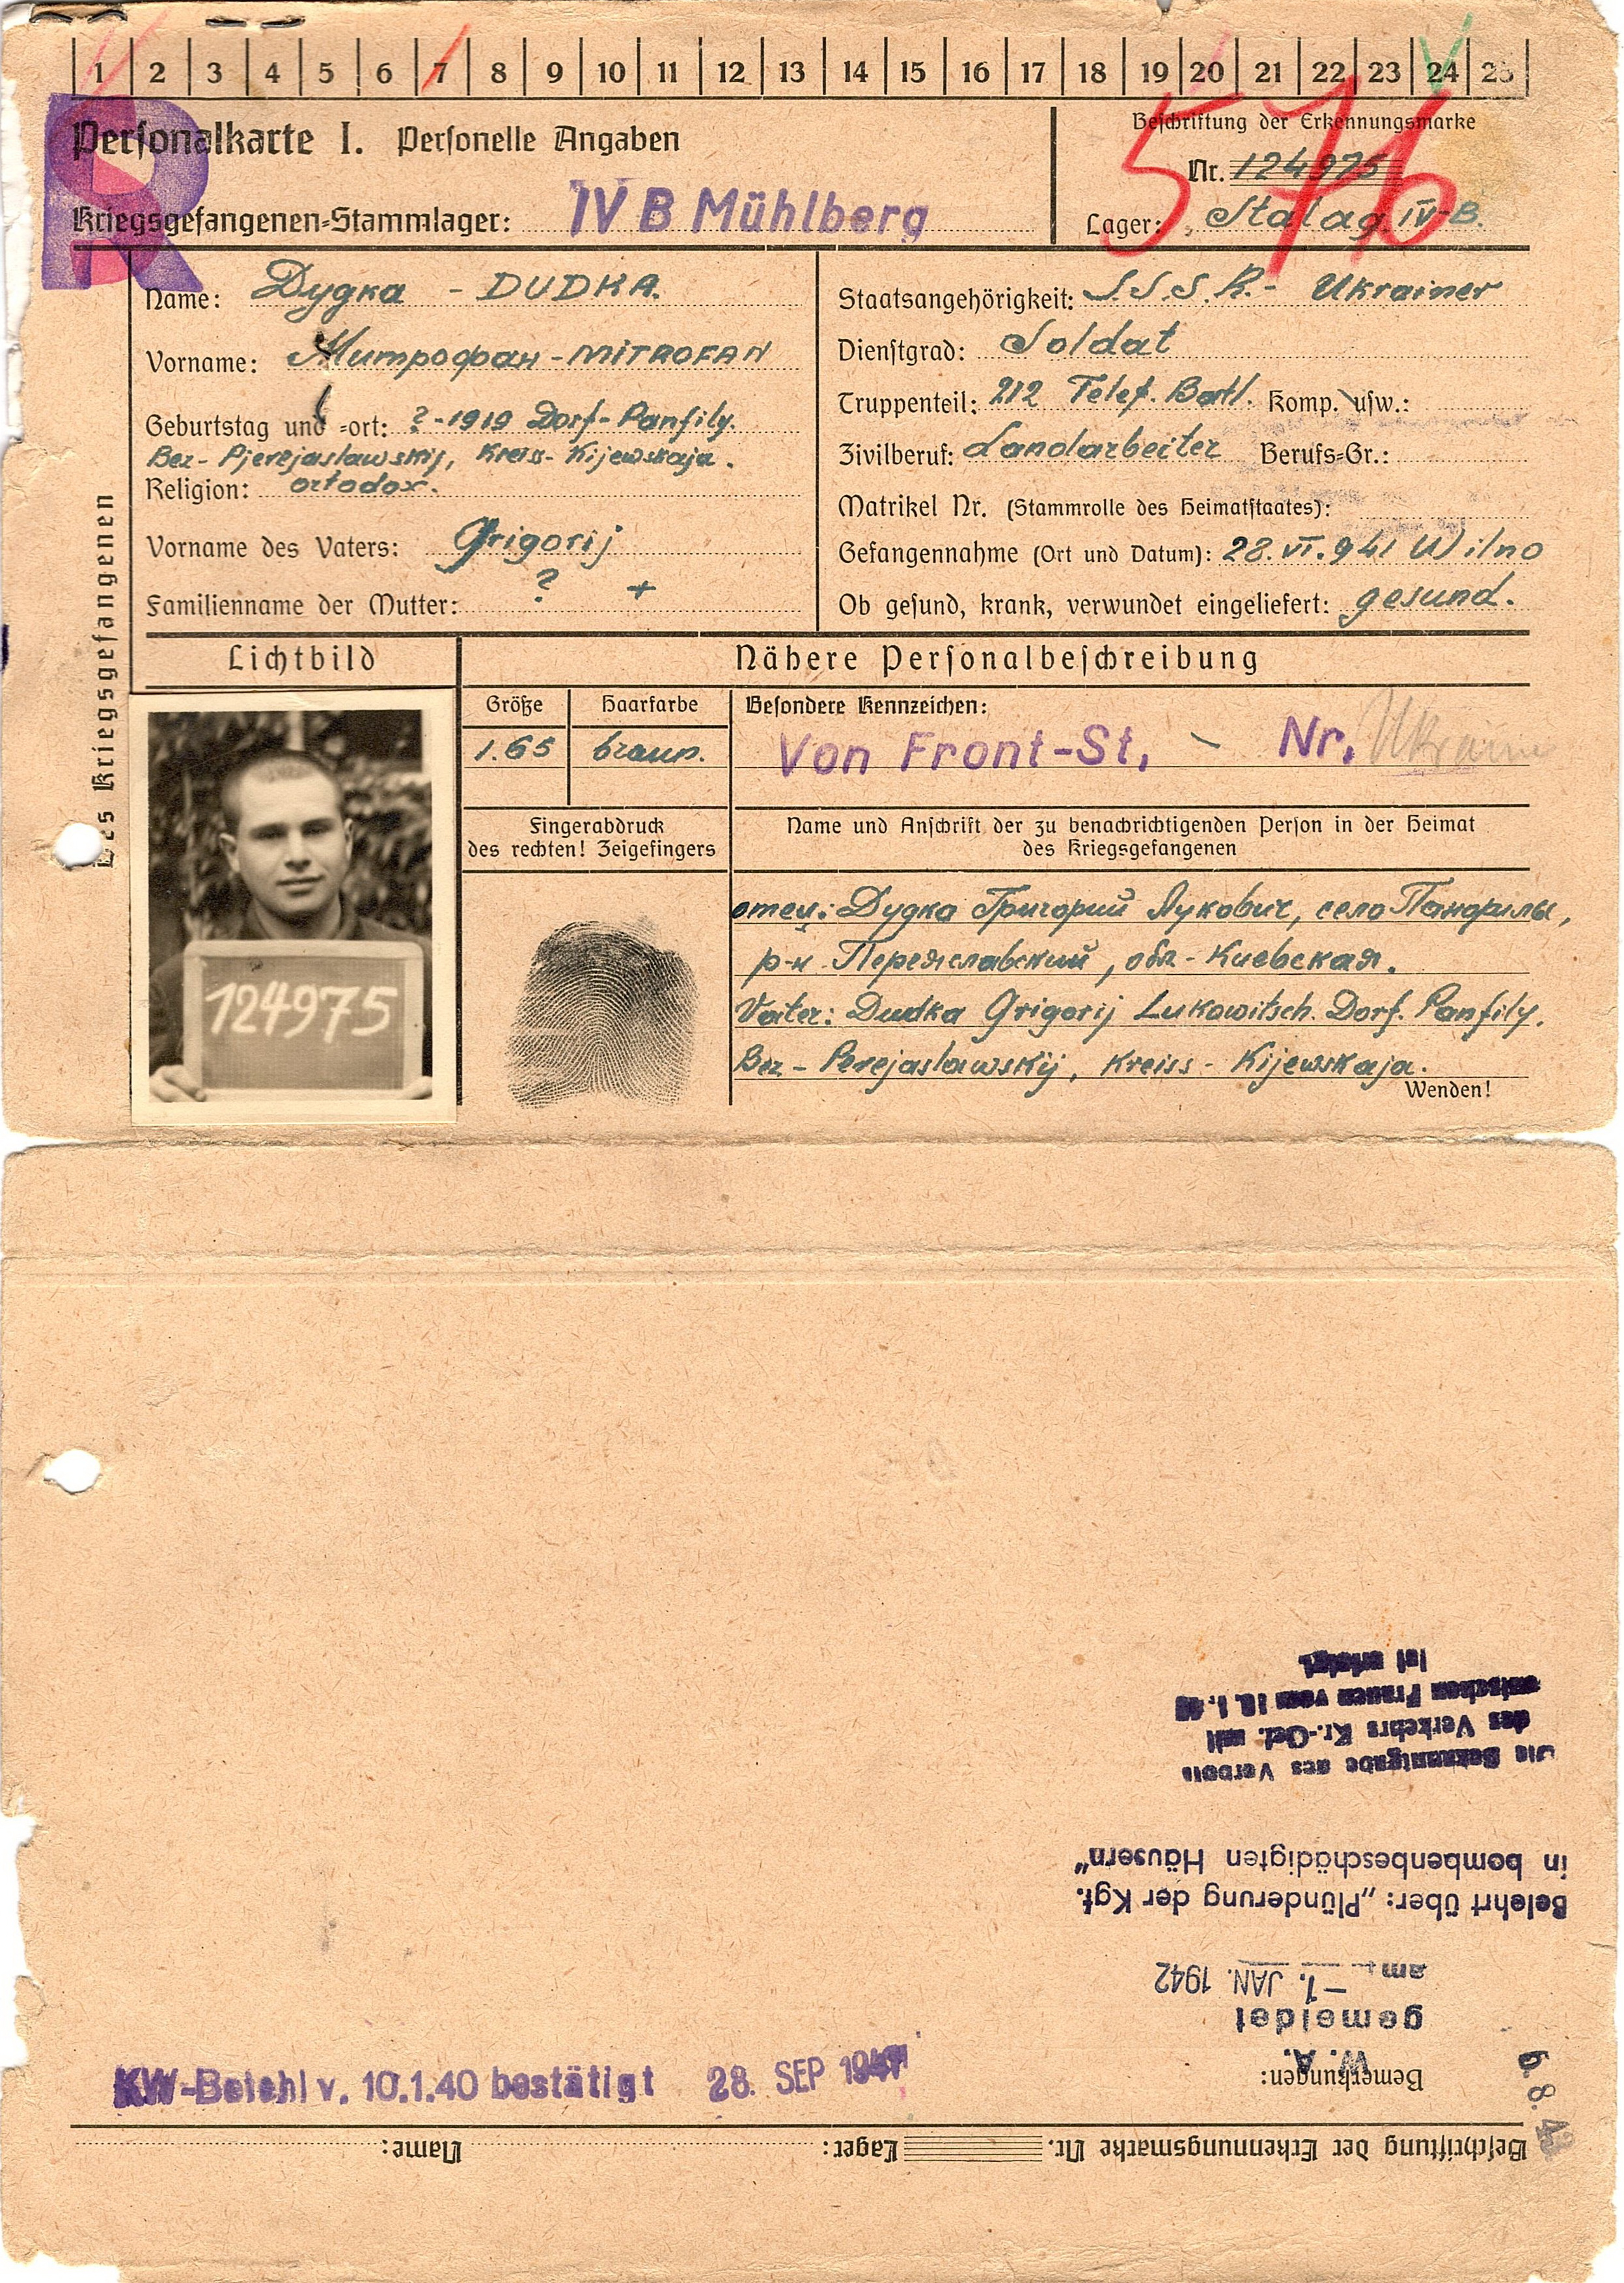 1 2 3 4 5 6 7 8 9 10 11 12 13 14 15 16 17 18 19 20 21 22 23 24 25
R
Personalkarte I. Personelle Angaben
Kriegsgefangenen-Stammlager: IV B Mühlberg
Beschriftung der Erkennungsmarke
Nr. 124975
Lager: Stalag IV-B.
576
des Kriegsgefangenen
Name: Дудка - DUDKA.
Vorname: Митрофан - MITROFAN
Geburtstag und -ort: ? - 1919 Dorf-Panfily.
Bez- Pjerejaslawskij, Kreiss- Kijewskaja.
Religion: ortodox.
Vorname des Vaters: Grigorij
Familienname der Mutter: ? +
Staatsangehörigkeit: S.S.S.R.- Ukrainer
Dienstgrad: Soldat
Truppenteil: 212 Telef. Batl. Komp. usw.:
Zivilberuf: Landarbeiter Berufs-Gr.:
Matrikel Nr. (Stammrolle des Heimatstaates):
Gefangennahme (Ort und Datum): 28.VI.941 Wilno
Ob gesund, krank, verwundet eingeliefert: gesund.
Lichtbild
124975
Nähere Personalbeschreibung
Größe Haarfarbe Besondere Kennzeichen:
1.65 braun. Von Front-St. - Nr. Ukrainer
Fingerabdruck
des rechten! Zeigefingers
Name und Anschrift der zu benachrichtigenden Person in der Heimat
des Kriegsgefangenen
отец: Дудка Григорий Лукович, село Панфилы,
р-н Переяславский, обл- Киевская.
Vater: Dudka Grigorij Lukowitsch. Dorf. Panfily.
Bez- Perejaslawskij, Kreiss- Kijewskaja.
Wenden!
Beschriftung der Erkennungsmarke Nr. Lager: Name:
Bemerkungen:
W. A.
gemeldet
am -1. JAN. 1942
Belehrt über: „Plünderung der Kgf.
in bombenbeschädigten Häusern"
Die Bekanntgabe des Verbots
des Verkehrs Kr.-Gef. mit
deutschen Frauen vom 10.1.40
ist erfolgt.
KW-Befehl v. 10.1.40 bestätigt 28. SEP 1941
6.8.43